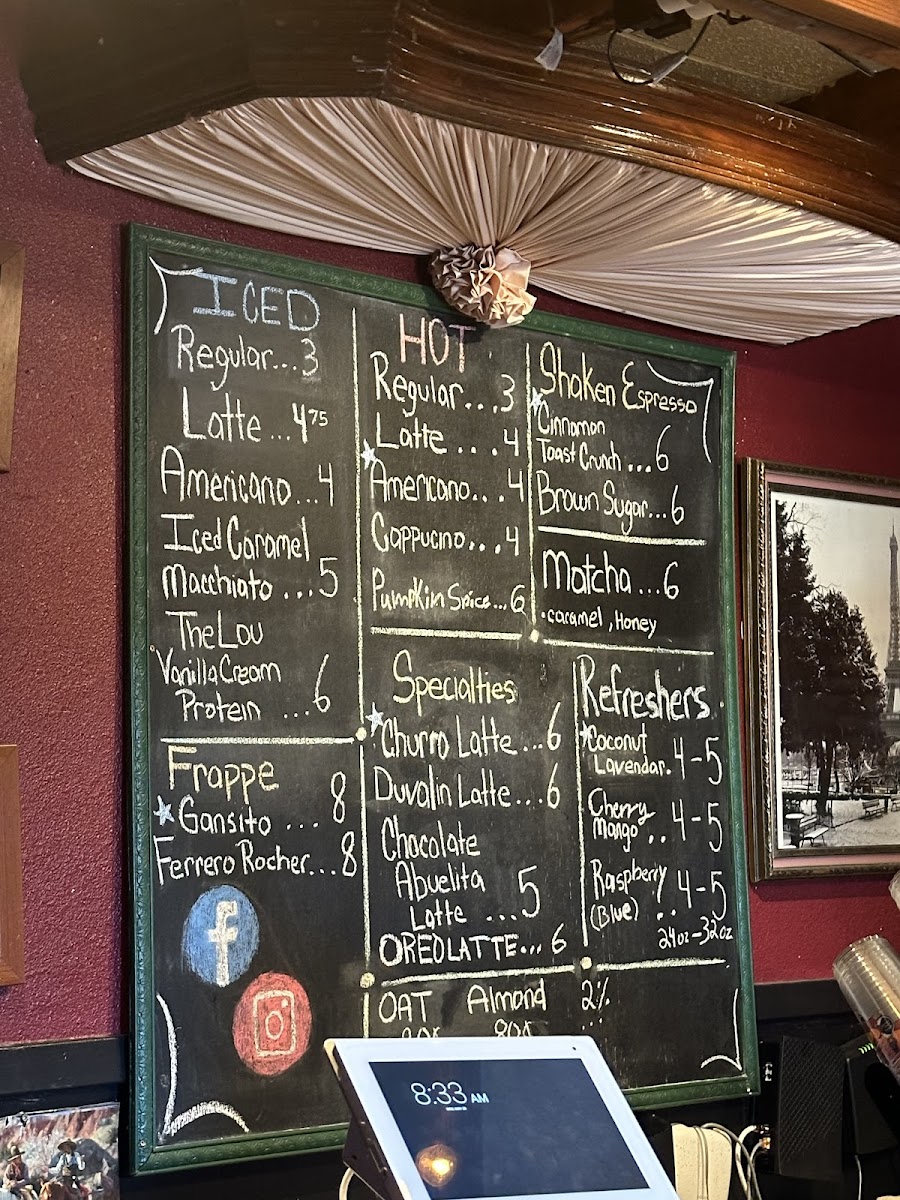 ICED
Regular...3
Latte ...4 75
Americano...4
Iced Caramel
Macchiato ...5
The Lou
Vanilla Cream
Protein ...6
Frappe
Gansito ... 8
Ferrero Rocher...8
f
HOT
Regular...3
Latte ...4
Americano...4
Cappucino...4
Pumpkin Spice...6
Shaken Espresso
Cinnamon
Toast Crunch ...6
Brown Sugar...6
Matcha ...6
•caramel, Honey
Specialties
Churro Latte...6
Duvalin Latte...6
Chocolate
Abuelita
Latte ...5
OREO LATTE... 6
Refreshers
Coconut
Lavendar. 4-5
Cherry
Mango .. 4-5
Raspberry
(Blue) .. 4-5
24oz-32oz
OAT Almond 2%
80¢ 80¢ ...
8:33 AM